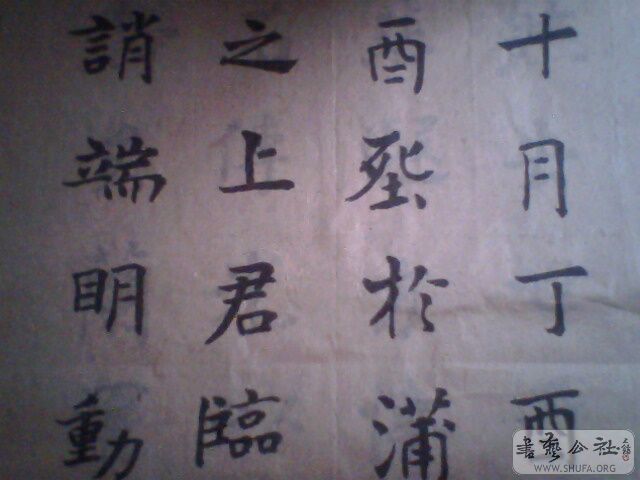 十月丁
酉於蒲
之上君臨
誚端眀動
書藝公社
WWW.SHUFA.ORG